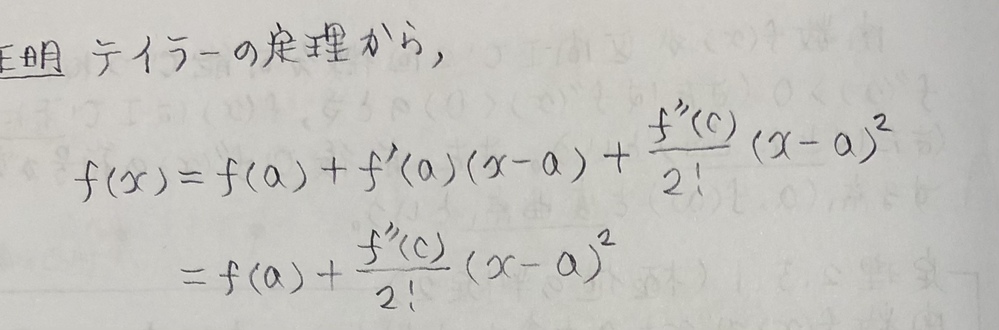 証明 テイラーの定理から,
f(x) = f(a) + f'(a)(x-a) + f''(c)/2! (x-a)²
= f(a) + f''(c)/2! (x-a)²